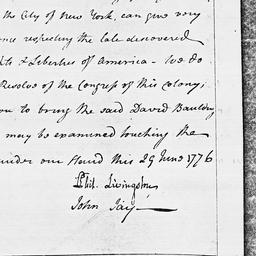 the City of New York, can give very
ence respecting the late discovered
hts & Liberties of America - We do
Resolve of the Congress of this Colony,
ou to bring the said David
may be examined touching the
under our Hand this 29 June 1776
Phil. Livingston
John Jay